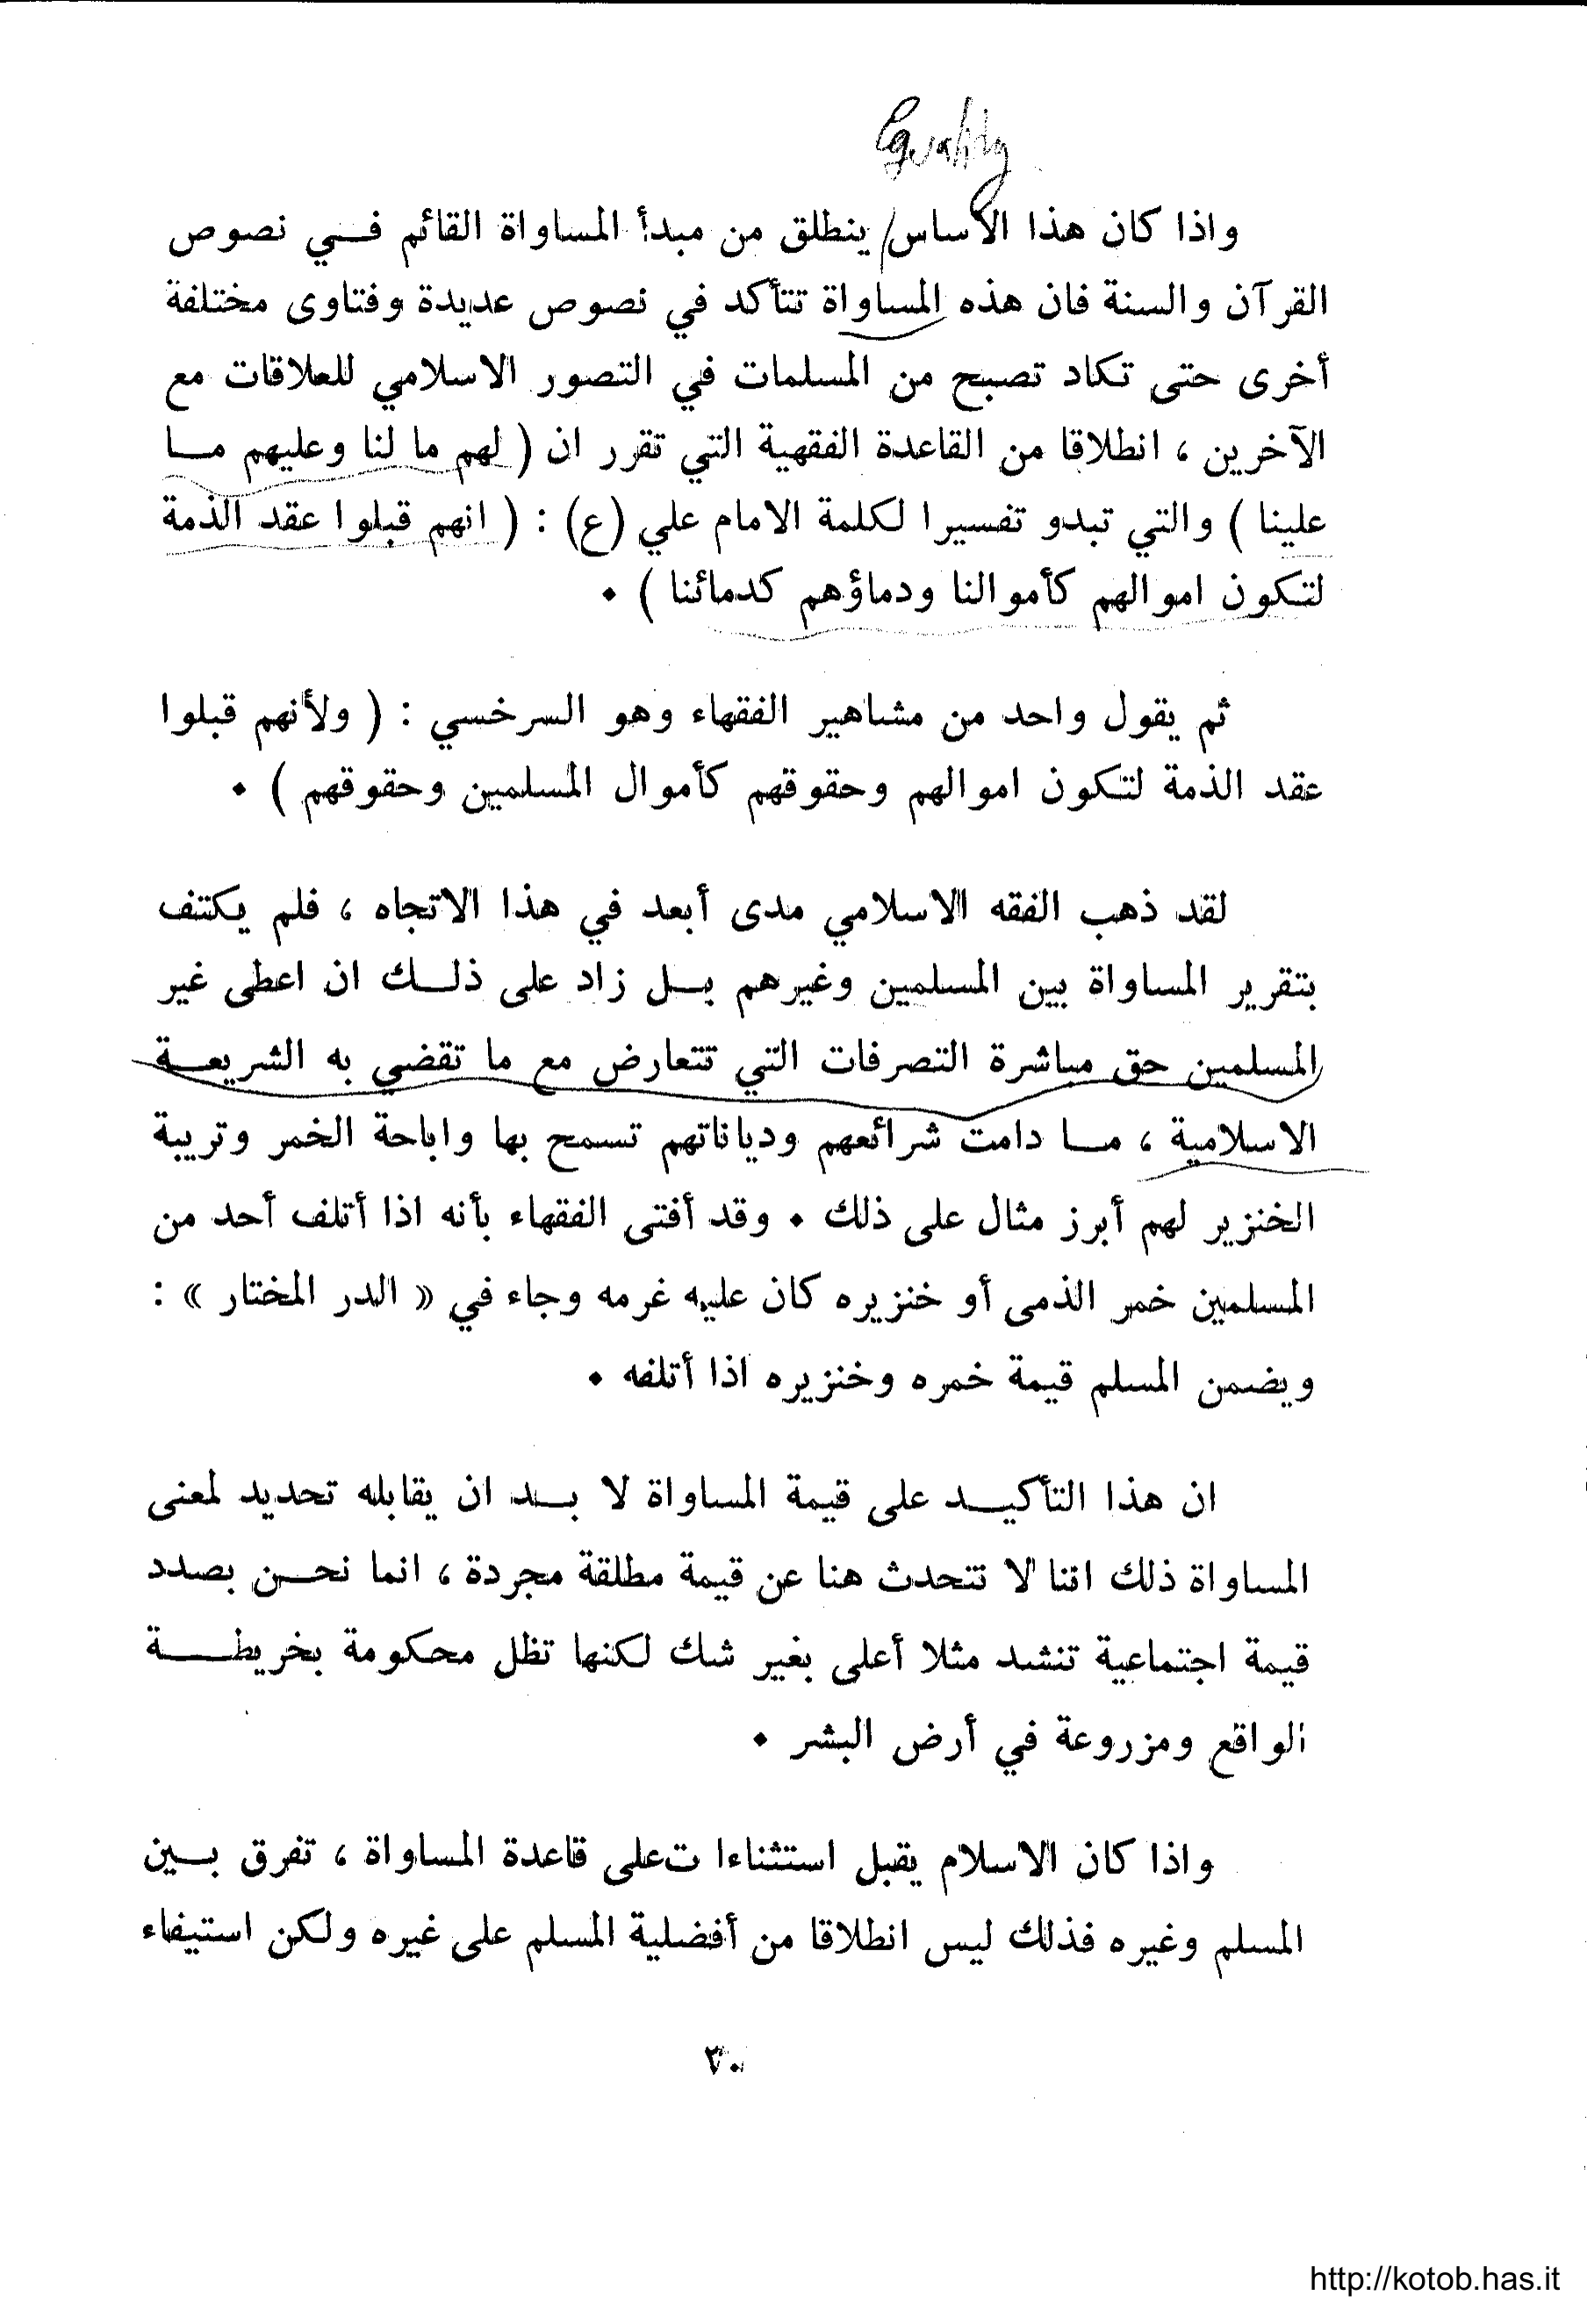 Equality
واذا كان هذا الأساس ينطلق من مبدأ المساواة القائم فــي نصوص
القرآن والسنة فان هذه المساواة تتأكد في نصوص عديدة وفتاوى مختلفة
أخرى حتى تكاد تصبح من المسلمات في التصور الاسلامي للعلاقات مع
الآخرين ، انطلاقا من القاعدة الفقهية التي تقرر ان ( لهم ما لنا وعليهم مــا
علينا ) والتي تبدو تفسيرا لكلمة الامام علي (ع) : ( انهم قبلوا عقد الذمة
لتكون اموالهم كأموالنا ودماؤهم كدمائنا ) ٠
ثم يقول واحد من مشاهير الفقهاء وهو السرخسي : ( ولأنهم قبلوا
عقد الذمة لتكون اموالهم وحقوقهم كأموال المسلمين وحقوقهم ) ٠
لقد ذهب الفقه الاسلامي مدى أبعد في هذا الاتجاه ، فلم يكتف
بتقرير المساواة بين المسلمين وغيرهم بــل زاد على ذلــك ان اعطى غير
المسلمين حق مباشرة التصرفات التي تتعارض مع ما تقضي به الشريعــة
الاسلامية ، مــا دامت شرائعهم ودياناتهم تسمح بها واباحة الخمر وتربية
الخنزير لهم أبرز مثال على ذلك ٠ وقد أفتى الفقهاء بأنه اذا أتلف أحد من
المسلمين خمر الذمى أو خنزيره كان عليه غرمه وجاء في « الدر المختار » :
ويضمن المسلم قيمة خمره وخنزيره اذا أتلفه ٠
ان هذا التأكيــد على قيمة المساواة لا بــد ان يقابله تحديد لمعنى
المساواة ذلك اننا لا نتحدث هنا عن قيمة مطلقة مجردة ، انما نحــن بصدد
قيمة اجتماعية تنشد مثلا أعلى بغير شك لكنها تظل محكومة بخريطـــة
الواقع ومزروعة في أرض البشر ٠
واذا كان الاسلام يقبل استثناءا تعلى قاعدة المساواة ، تفرق بــين
المسلم وغيره فذلك ليس انطلاقا من أفضلية المسلم على غيره ولكن استيفاء
٣٠
http://kotob.has.it